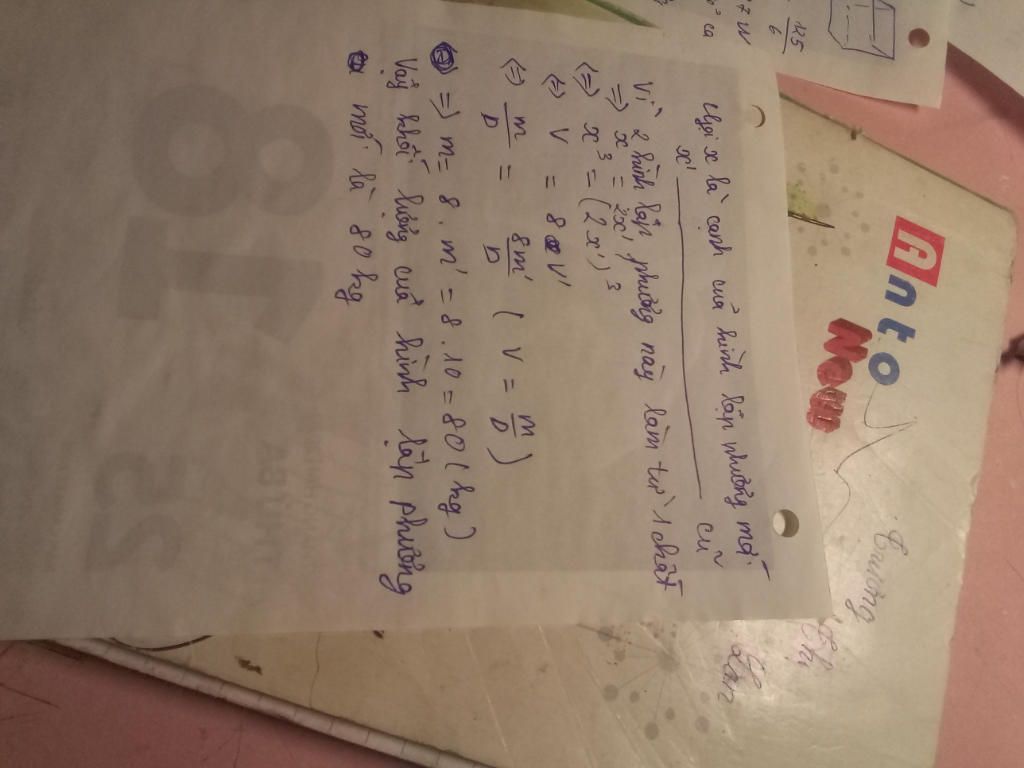 Gọi x là cạnh của hình lập phương mới
x' ———— cũ
Vì 2 hình lập phương này làm từ 1 chất
=> x = 2x'
<=> x³ = (2x')³
<=> V = 8 V'
<=> m/D = 8m'/D ( V = m/D )
=> m = 8 . m' = 8 . 10 = 80 ( kg )
Vậy khối lượng của hình lập phương
mới là 80 kg
Anto
New
Trường
Thị
125/6
25